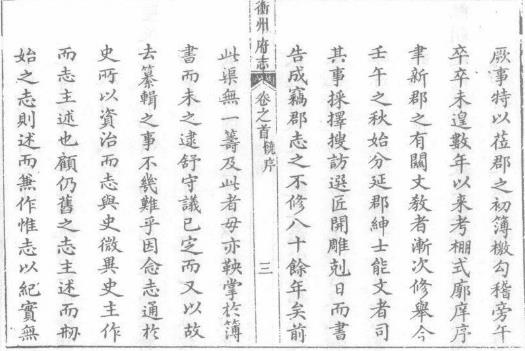 厥事特以莅郡之初簿檄勾稽旁午
卒卒未遑數年以來考棚式廓庠序
聿新郡之有關文教者漸次修舉今
壬午之秋始分延郡紳士能文者司
其事採擇搜訪選匠開雕剋日而書
告成竊郡志之不修八十餘年矣前
衢州府志
卷之首 序
三
此渠無一籌及此者毋亦鞅掌於簿
書而未之逮舒守議已定而又以故
去纂輯之事不幾難乎因念志通於
史所以資治而志與史微異史主作
而志主述也顧仍舊之志主述而刱
始之志則述而兼作惟志以紀實無